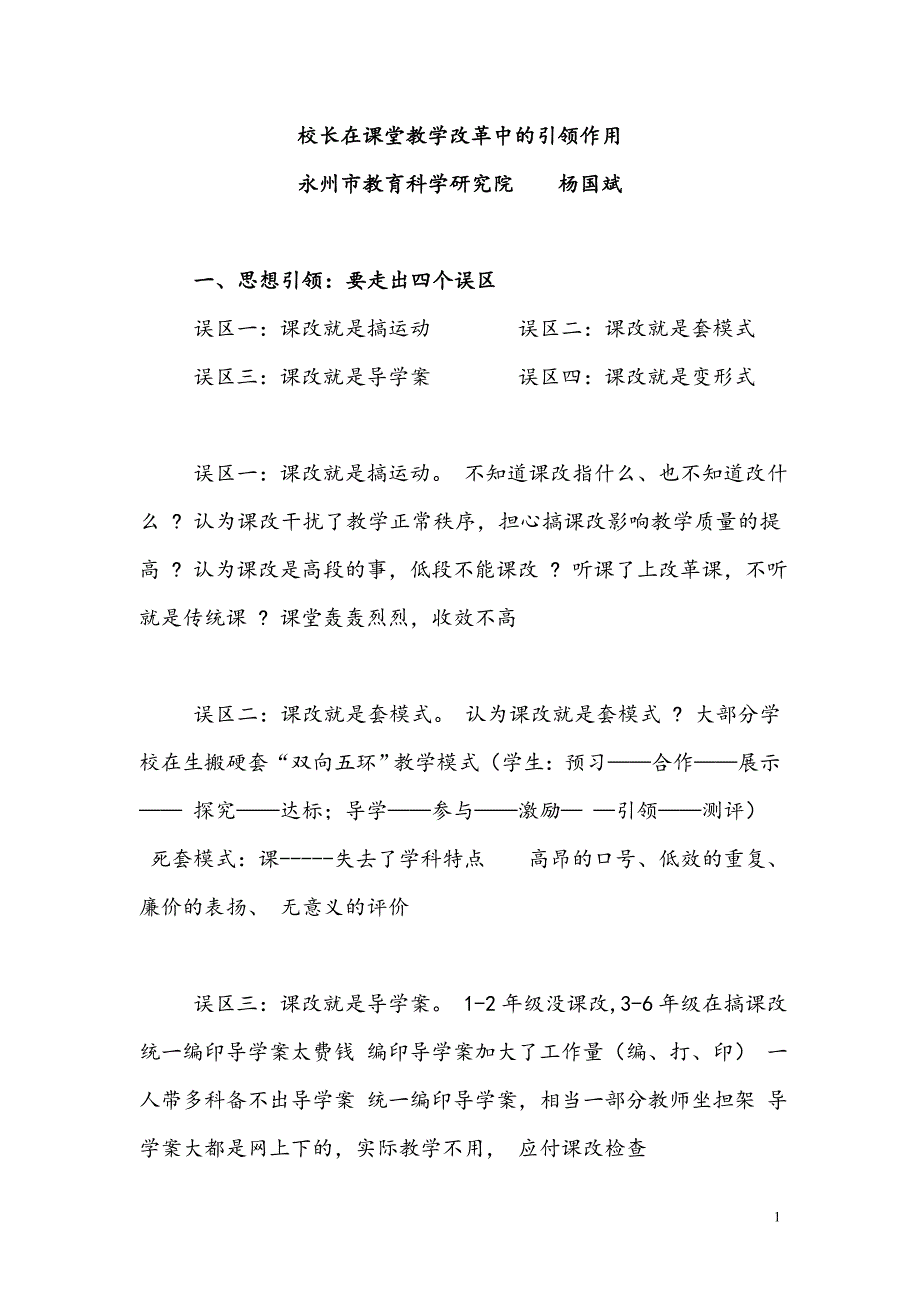 校长在课堂教学改革中的引领作用
永州市教育科学研究院 杨国斌
一、思想引领：要走出四个误区
误区一：课改就是搞运动 误区二：课改就是套模式
误区三：课改就是导学案 误区四：课改就是变形式
误区一：课改就是搞运动。 不知道课改指什么、也不知道改什
么 ? 认为课改干扰了教学正常秩序，担心搞课改影响教学质量的提
高 ? 认为课改是高段的事，低段不能课改 ? 听课了上改革课，不听
就是传统课 ? 课堂轰轰烈烈，收效不高
误区二：课改就是套模式。 认为课改就是套模式 ? 大部分学
校在生搬硬套“双向五环”教学模式（学生：预习——合作——展示
—— 探究——达标；导学——参与——激励— —引领——测评）
死套模式：课-----失去了学科特点 高昂的口号、低效的重复、
廉价的表扬、 无意义的评价
误区三：课改就是导学案。 1-2 年级没课改,3-6 年级在搞课改
统一编印导学案太费钱 编印导学案加大了工作量（编、打、印） 一
人带多科备不出导学案 统一编印导学案，相当一部分教师坐担架 导
学案大都是网上下的，实际教学不用， 应付课改检查
1